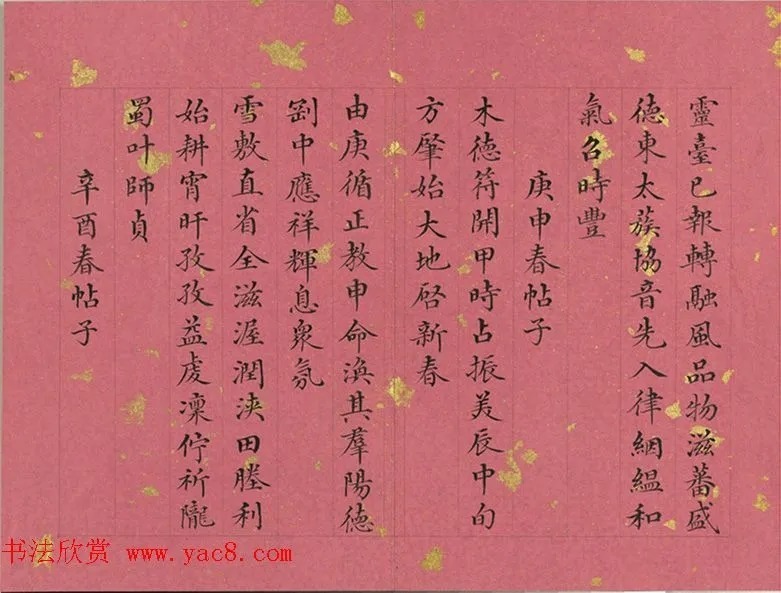 靈臺已報轉融風品物滋蕃盛
德東太蔟協音先入律絪緼和
氣召時豐
庚申春帖子
木德符開甲時占振美辰中旬
方肇始大地啓新春
由庚循正教申命渙其羣陽德
剛中應祥輝息衆氛
雪敷直省全滋渥潤浹田塍利
始耕宵旰孜孜益虔凜佇祈隴
蜀叶師貞
辛酉春帖子
书法欣赏 www.yac8.com